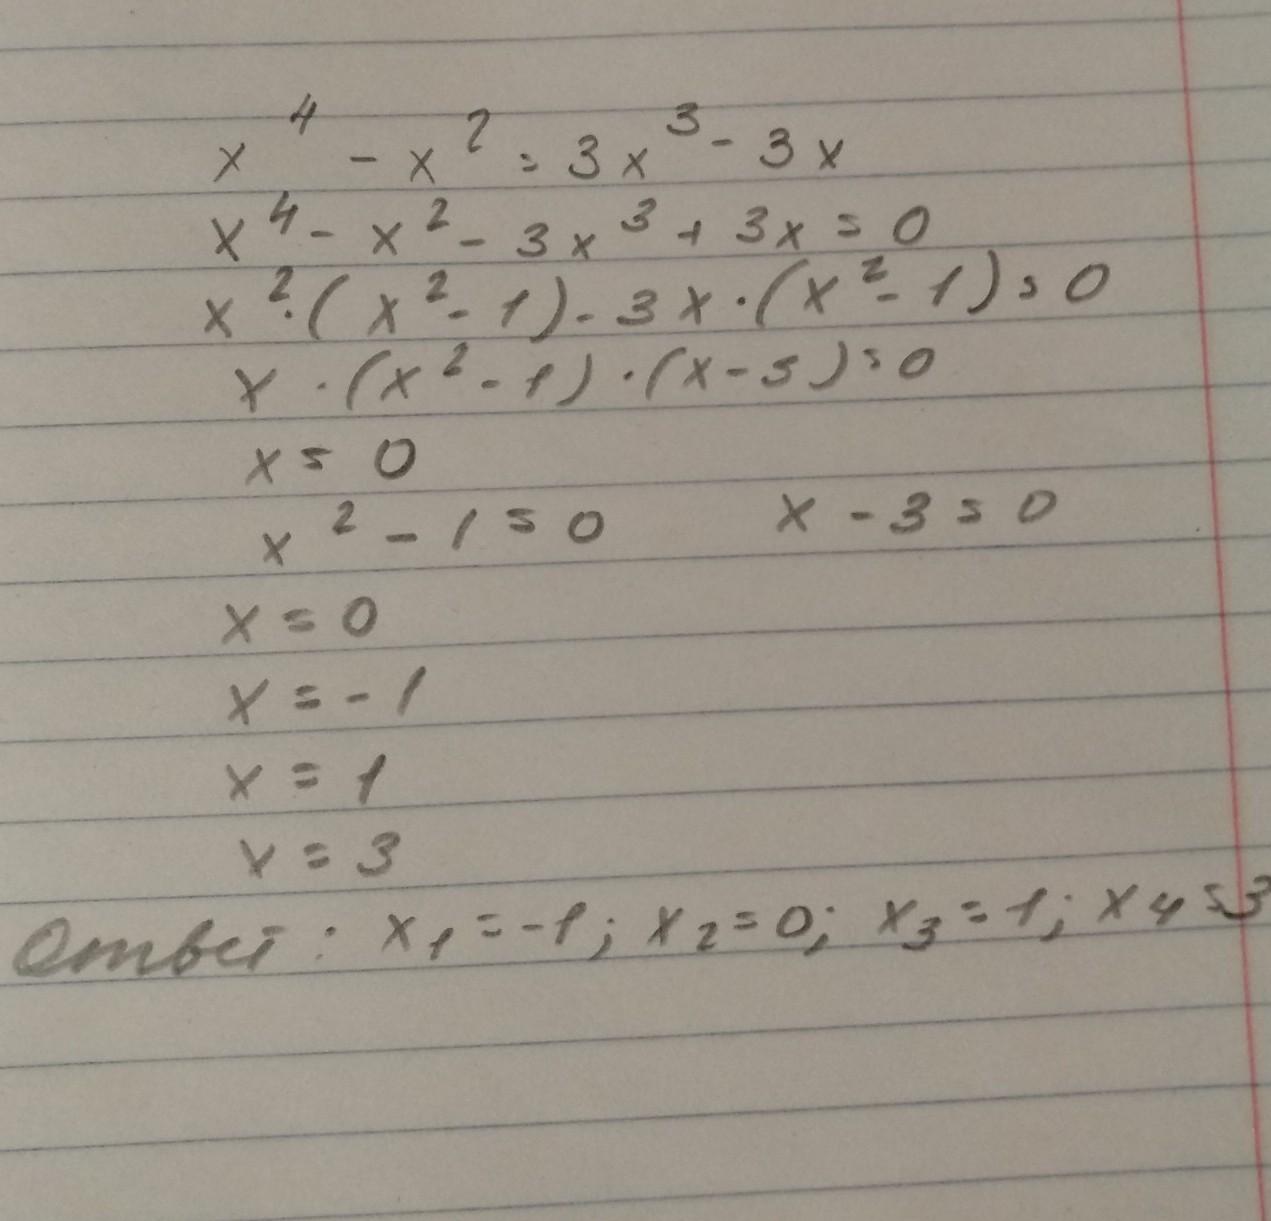 x⁴ - x² = 3x³ - 3x
x⁴ - x² - 3x³ + 3x = 0
x² · (x² - 1) - 3x · (x² - 1) = 0
x · (x² - 1) · (x - 3) = 0
x = 0
x² - 1 = 0 x - 3 = 0
x = 0
x = -1
x = 1
x = 3
Ответ: x₁ = -1; x₂ = 0; x₃ = 1; x₄ = 3